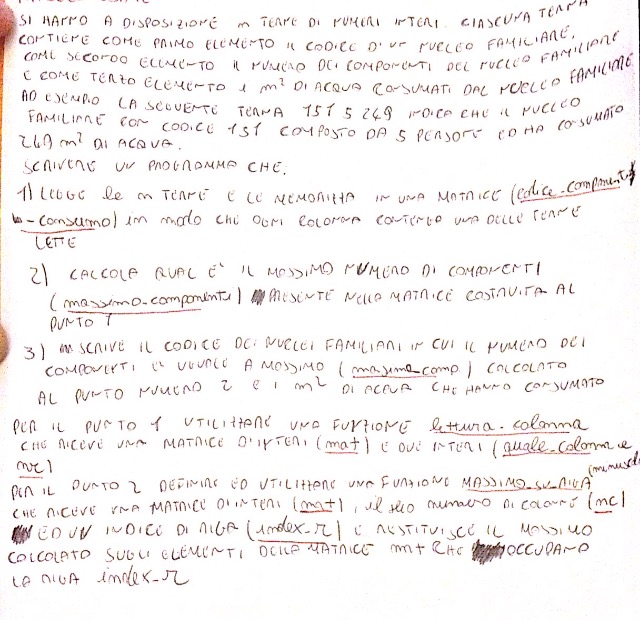 SI HANNO A DISPOSIZIONE m TERNE DI NUMERI INTERI. CIASCUNA TERNA
CONTIENE COME PRIMO ELEMENTO IL CODICE D'UN NUCLEO FAMILIARE,
COME SECONDO ELEMENTO IL NUMERO DEI COMPONENTI DEL NUCLEO FAMILIARE
E COME TERZO ELEMENTO I m² DI ACQUA CONSUMATI DAL NUCLEO FAMILIARE
AD ESEMPIO LA SEGUENTE TERNA 151 5 249 INDICA CHE IL NUCLEO
FAMILIARE CON CODICE 151 COMPOSTO DA 5 PERSONE ED HA CONSUMATO
249 m² DI ACQUA.
SCRIVERE UN PROGRAMMA CHE.
1) LEGGE le m TERNE E LE MEMORIZZA IN UNA MATRICE (codice-componenti
-consumo) in modo CHE OGNI COLONNA CONTENGA UNA DELLE TERNE
LETTE
2) CALCOLA QUAL E' IL MASSIMO NUMERO DI COMPONENTI
(massimo-componenti) PRESENTE NELLA MATRICE COSTRUITA AL
PUNTO 1
3) SCRIVE IL CODICE DEI NUCLEI FAMILIARI IN CUI IL NUMERO DEI
COMPONENTI E' UGUALE A MASSIMO (massimo-comp) CALCOLATO
AL PUNTO NUMERO 2 E I m² DI ACQUA CHE HANNO CONSUMATO
PER IL PUNTO 1 UTILIZZARE UNA FUNZIONE lettura-colonna
CHE RICEVE UNA MATRICE D'INTERI (mat) E DUE INTERI (quale-colonna e
nc)
PER IL PUNTO 2 DEFINIRE ED UTILIZZARE UNA FUNZIONE MASSIMO_SU_RIGA (minuscolo)
CHE RICEVE UNA MATRICE DI INTERI (mat), il suo numero DI COLONNE (mc)
ED UN INDICE DI RIGA (index-r) E RESTITUISCE IL MASSIMO
CALCOLATO SUGLI ELEMENTI DELLA MATRICE mat CHE OCCUPANO
LA RIGA index-r